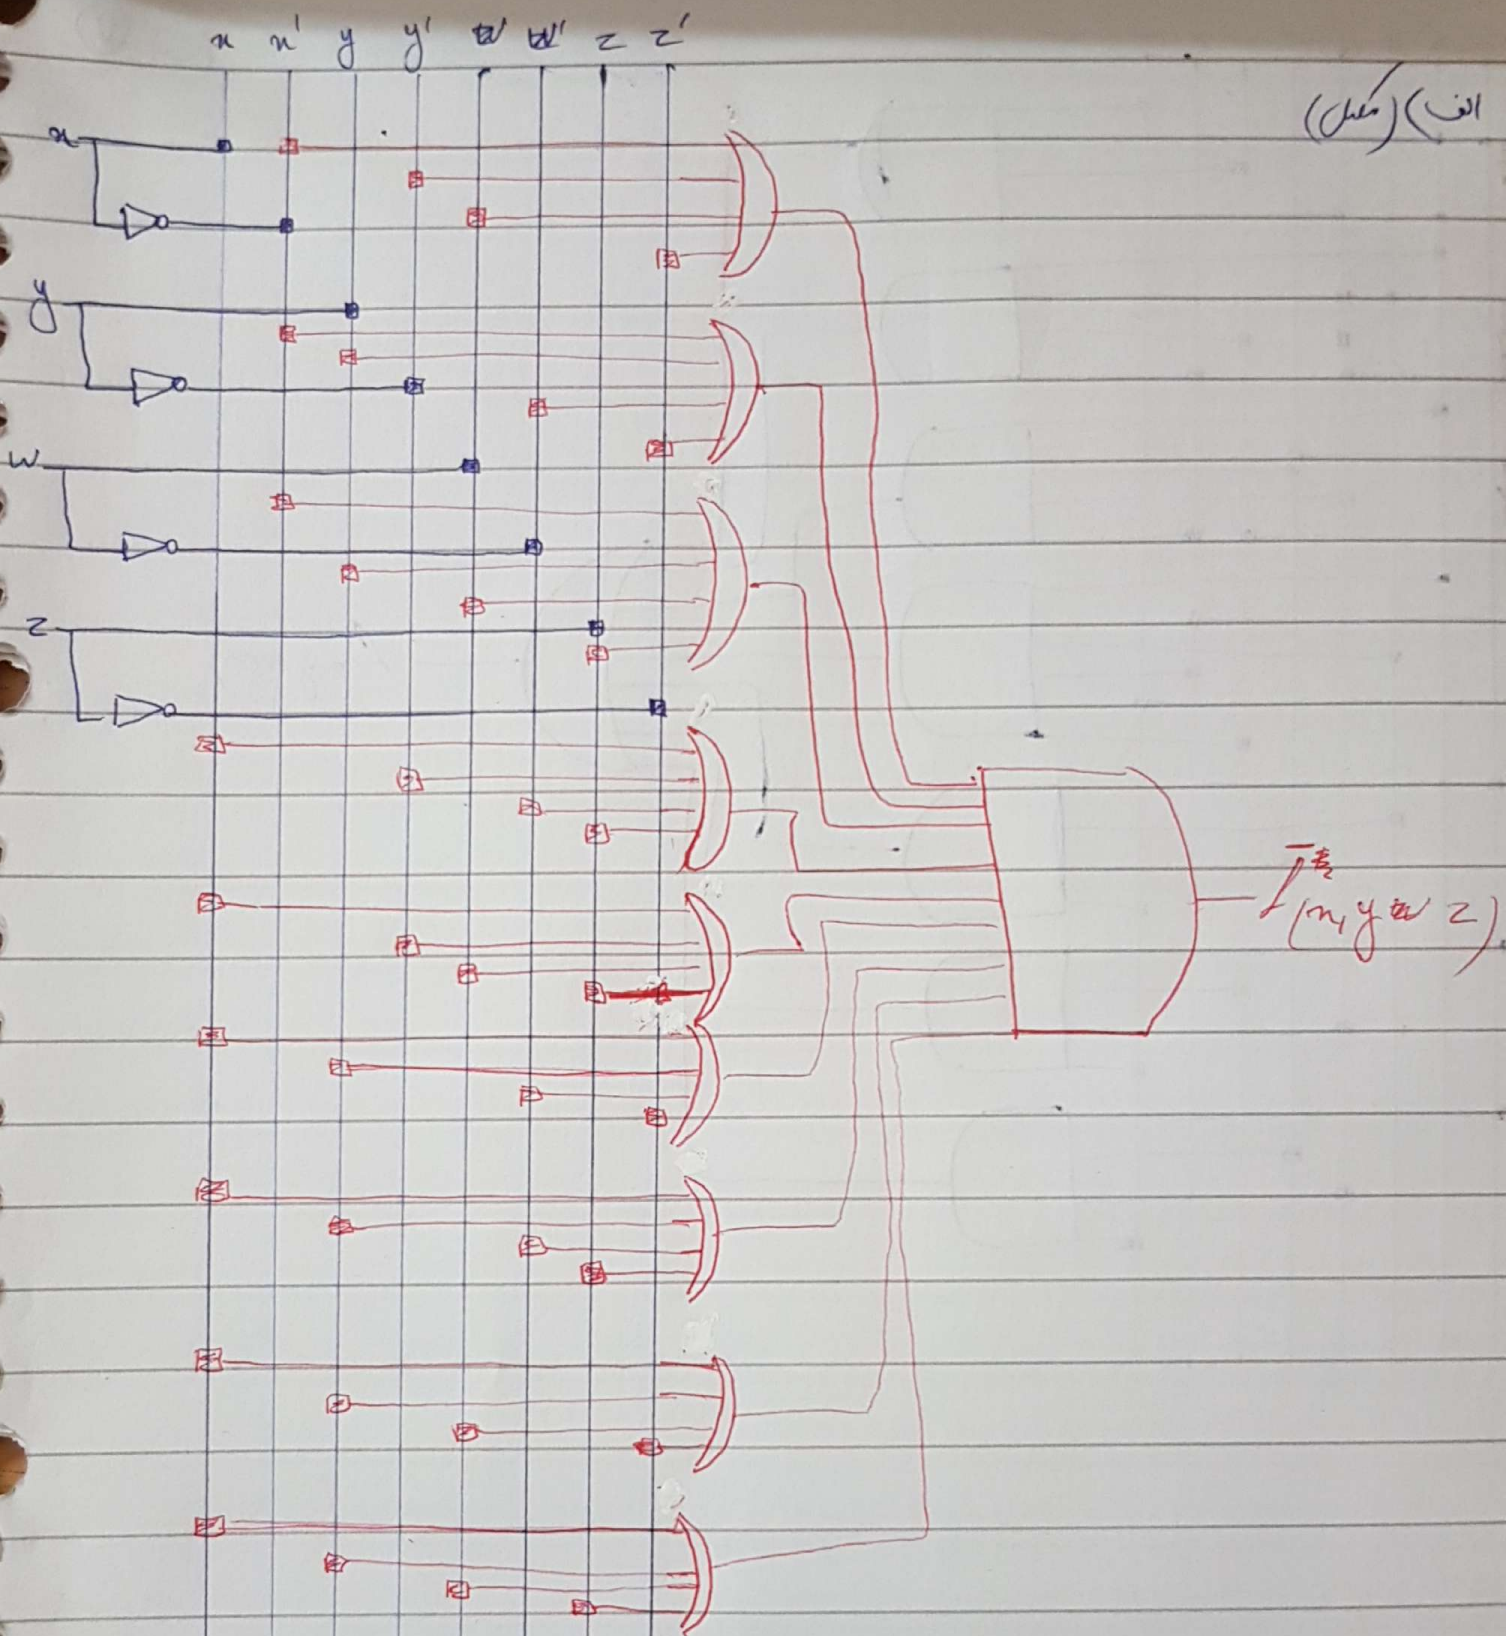 x x' y y' w w' z z'
الف) (مکمل)
x
y
w
z
(x, y w z)